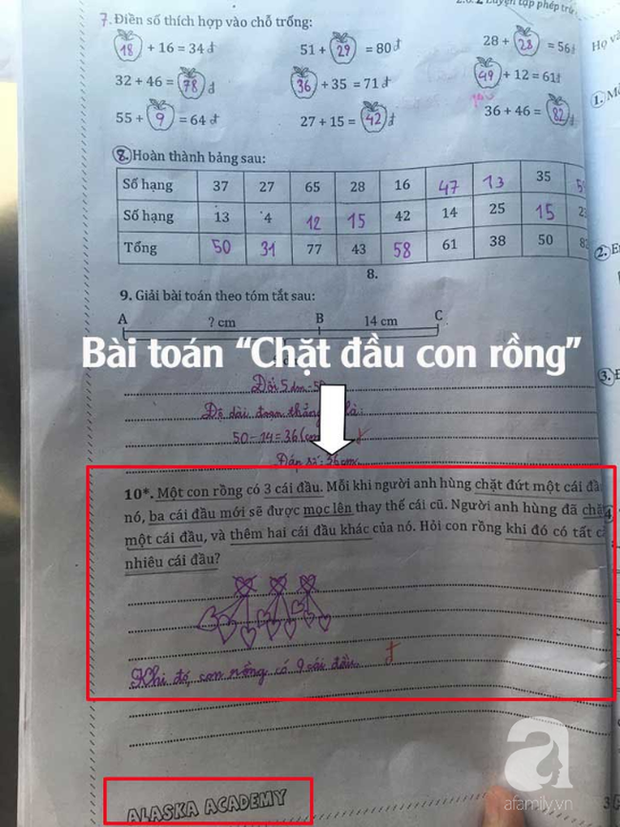 2.0.2 Luyện tập phép trừ
7. Điền số thích hợp vào chỗ trống:
18 + 16 = 34 đ
51 + 29 = 80 đ
28 + 28 = 56
32 + 46 = 78 đ
36 + 35 = 71 đ
49 + 12 = 61
55 + 9 = 64 đ
27 + 15 = 42 đ
36 + 46 = 82
8. Hoàn thành bảng sau:
Số hạng 37 27 65 28 16 47 13 35
Số hạng 13 4 12 15 42 14 25 15
Tổng 50 31 77 43 58 61 38 50
8.
9. Giải bài toán theo tóm tắt sau:
A B C
? cm 14 cm
Bài toán “Chặt đầu con rồng”
Đổi 5
Độ dài đoạn thẳng là:
50 - 14 = 36 (cm
Đáp số: 36 cm
10*. Một con rồng có 3 cái đầu. Mỗi khi người anh hùng chặt đứt một cái
nó, ba cái đầu mới sẽ được mọc lên thay thế cái cũ. Người anh hùng đã
một cái đầu, và thêm hai cái đầu khác của nó. Hỏi con rồng khi đó có tất
nhiêu cái đầu?
Khi đó, con rồng có 9 cái đầu.
ALASKA ACADEMY
a
afamily.vn
Họ
1.
2.
3.